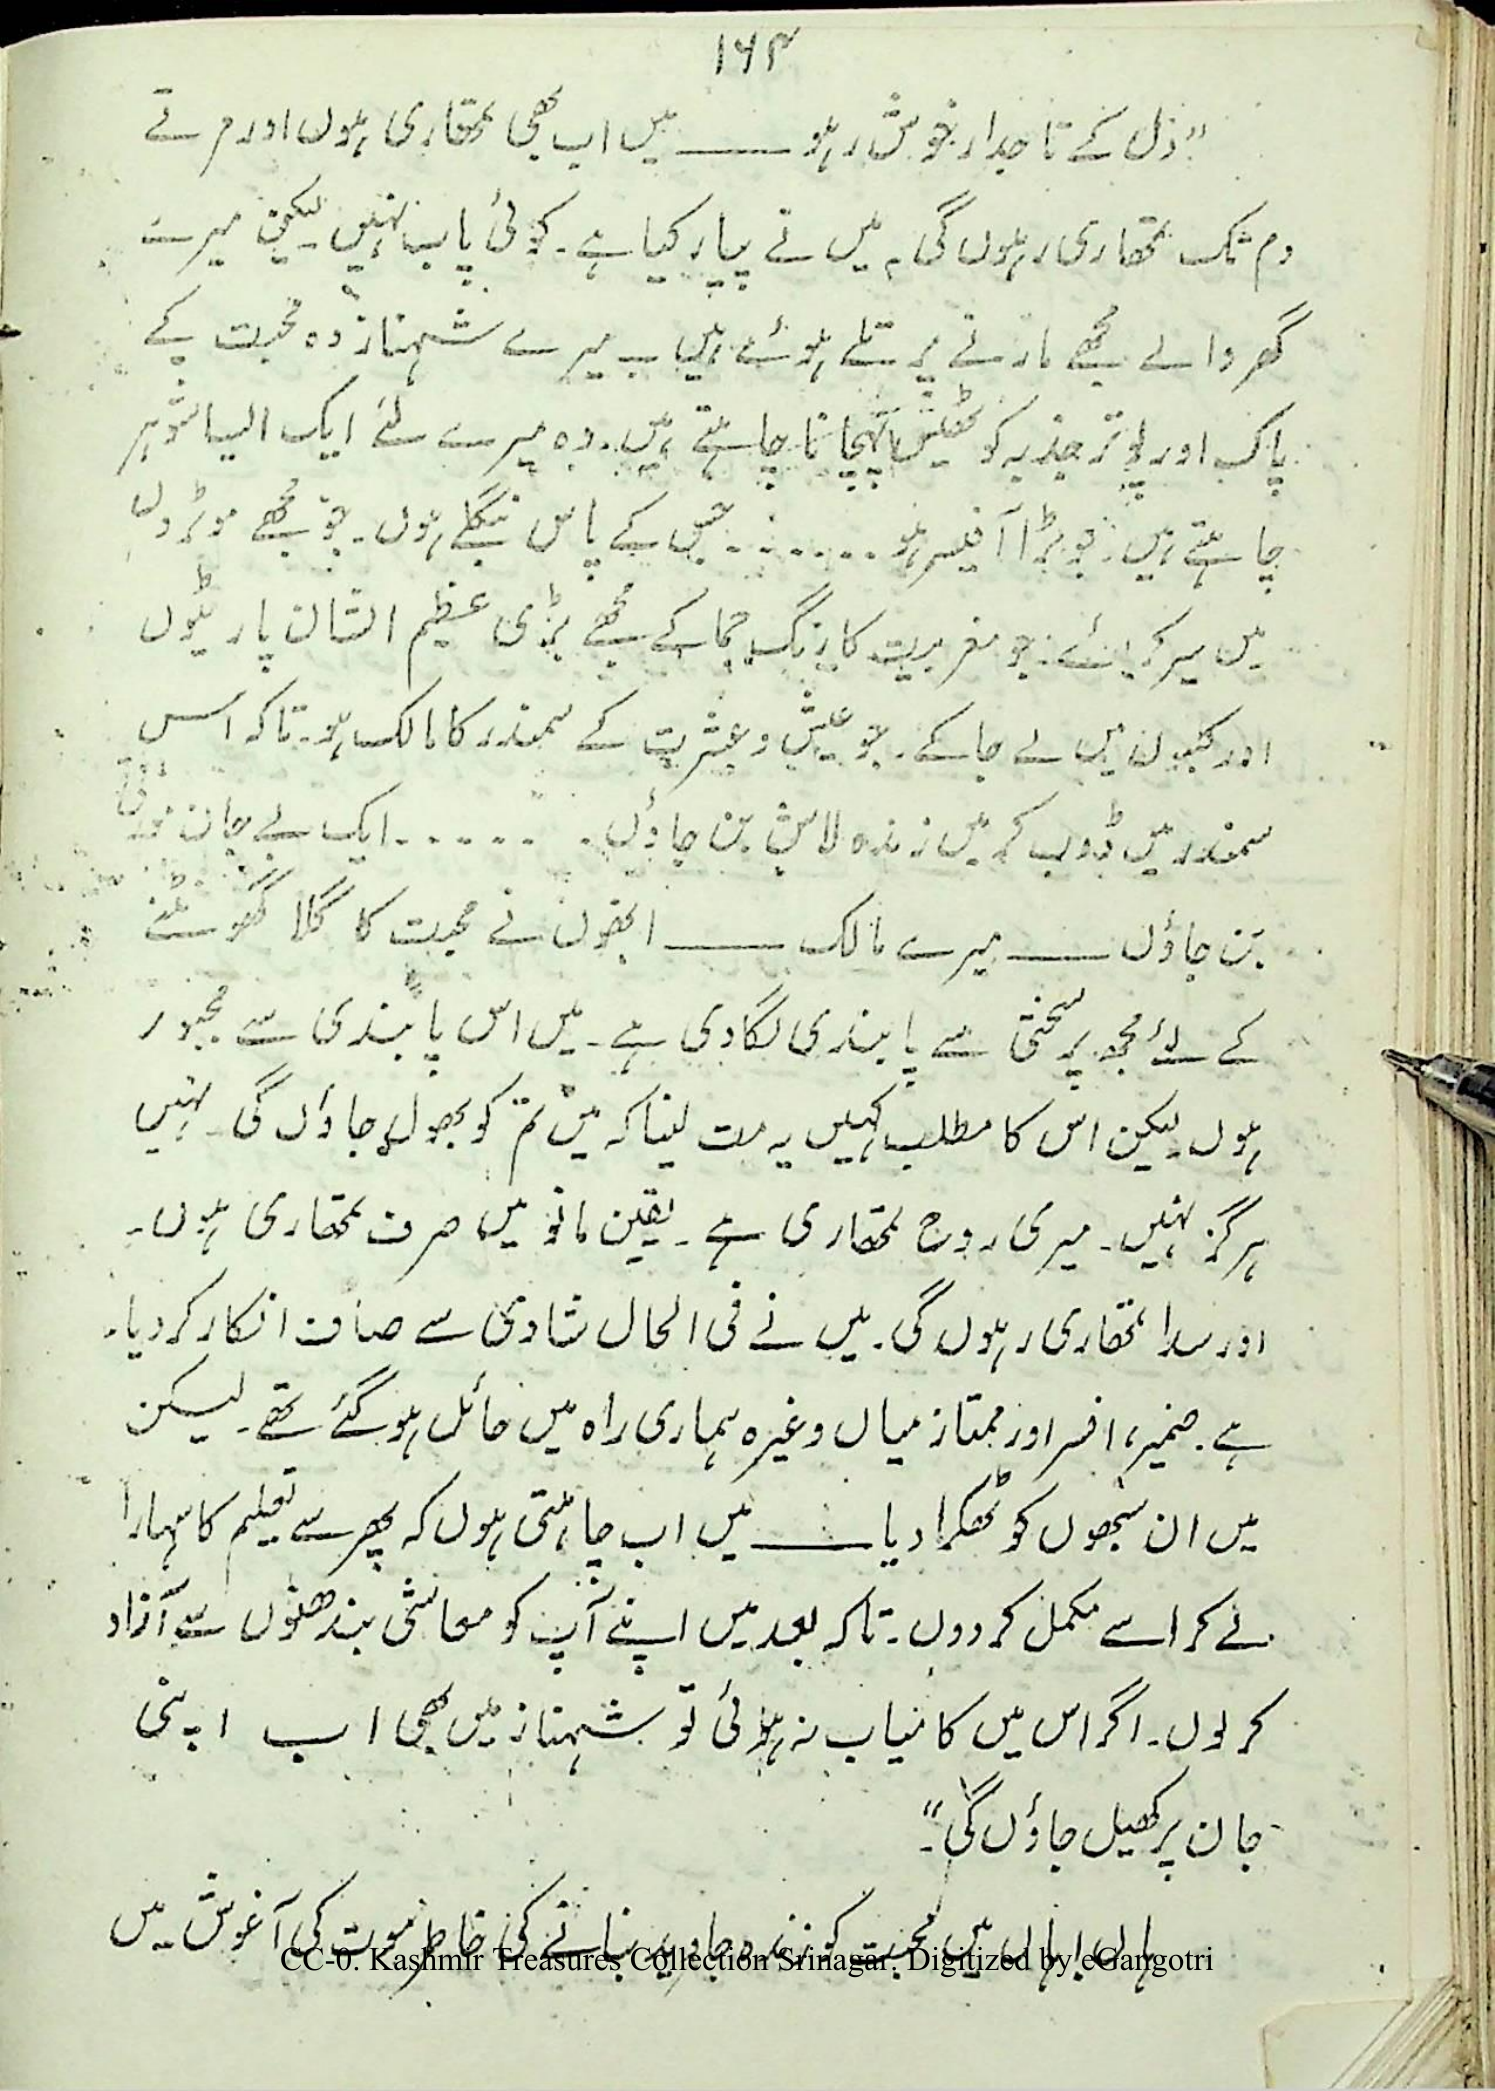 ۱۶۴
"دل کے تاجدار خوش رہو ـــــ میں اب بھی تمھاری ہوں اور مرتے
دم تک تمھاری رہوں گی۔ میں نے پیار کیا ہے۔ کوئی پاپ نہیں۔ لیکن میرے
گھر والے مجھے مارنے پر تلے ہوئے ہیں۔ میرے شہناز وہ محبت کے
پاک اور پوتر جذبہ کو ٹھیس پہچانا چاہتے ہیں۔ وہ میرے لئے ایک ایسا شوہر
چاہتے ہیں۔ جو بڑا آفیسر ہو . . . . . . . جس کے پاس بنگلے ہوں۔ جو مجھے موٹروں
میں سیر کرائے۔ جو مغربیت کا رنگ جما کے مجھے بڑی عظیم الشان پارٹیوں
اور کلبوں میں لے جاکے۔ جو عیش و عشرت کے سمندر کا مالک ہو۔ تاکہ اس
سمندر میں ڈوب کر میں زندہ لاش بن جاؤں۔ . . . . . . ایک بے جان
بن جاؤں ـــــ میرے مالک ـــــ انھوں نے محبت کا گلا گھوٹنے
کے لئے مجھ پر سختی سے پابندی لگادی ہے۔ میں اس پابندی سے مجبور
ہوں لیکن اس کا مطلب کہیں یہ مت لینا کہ میں تم کو بھول جاؤں گی۔ نہیں
ہرگز نہیں۔ میری روح تمھاری ہے۔ یقین مانو میں صرف تمھاری ہوں۔
اور سدا تمھاری رہوں گی۔ میں نے فی الحال شادی سے صاف انکار کردیا۔
ہے۔ ضمیر، افسر اور ممتاز میاں وغیرہ ہماری راہ میں حائل ہوگئے تھے۔ لیکن
میں ان سبھوں کو ٹھکرا دیا ـــــ میں اب چاہتی ہوں کہ پھر سے تعلیم کا سہارا
لے کر اسے مکمل کردوں۔ تاکہ بعد میں اپنے آپ کو معاشی بندھنوں سے آزاد
کر لوں۔ اگر اس میں کامیاب نہ ہوئی تو شہناز میں بھی اب اپنی
جان پر کھیل جاؤں گی۔"
ہاں! ہاں میں محبت کو زندہ جاوید بنانے کی خاطر موت کی آغوش میں
CC-0. Kashmir Treasures Collection Srinagar. Digitized by eGangotri